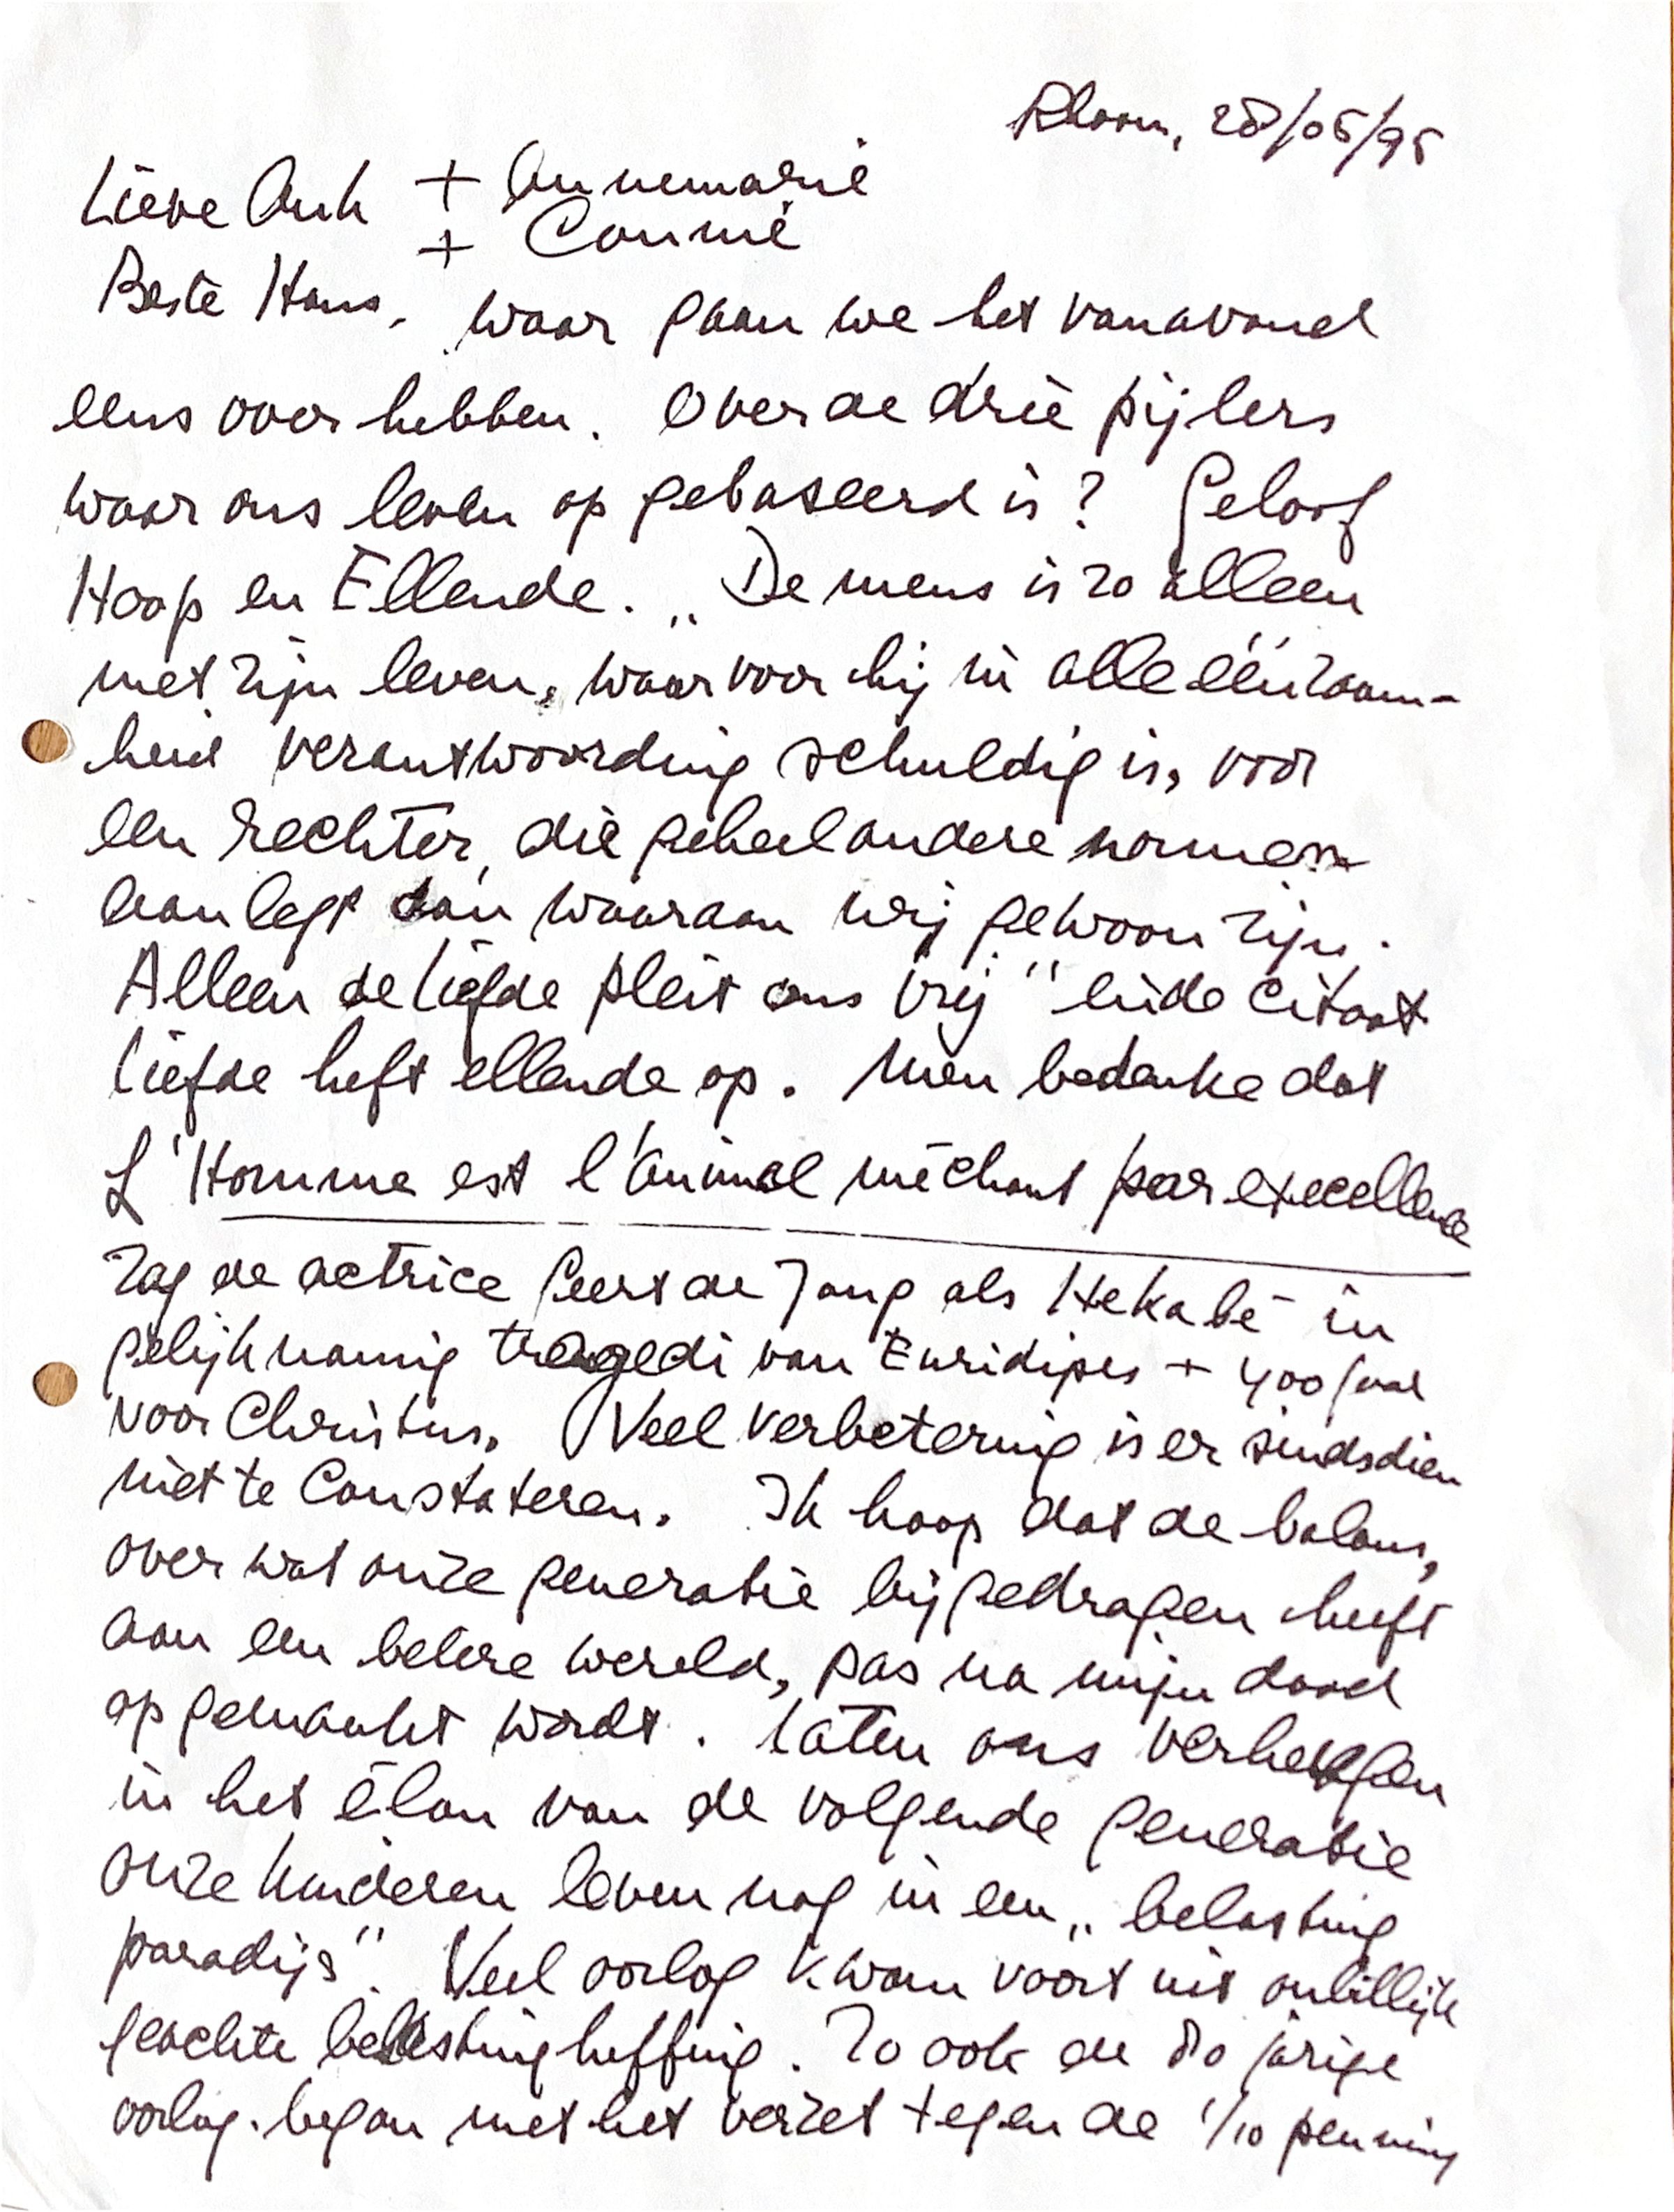 Rhoon, 28/05/95
Lieve Anh + Annemarie
+ Connie
Beste Hans, waar gaan we het vanavond
eens over hebben. Over de drie pijlers
waar ons leven op gebaseerd is? Geloof
Hoop en Ellende. „De mens is zo alleen
met zijn leven, waarvoor hij in alle éénzaam-
heid verantwoording schuldig is, voor
een rechter, die geheel andere normen
aanlegt dan waaraan wij gewoon zijn.
Alleen de liefde pleit ons vrij" einde citaat
liefde heft ellende op. Men bedenke dat
L'Homme est l'animal méchant par excellence
Zag de actrice Geert de Jong als Hekabé in
gelijknamig tragedi van Euridipes + 400 jaar
voor Christus. Veel verbetering is er sindsdien
niet te Constateren. Ik hoop dat de balans,
over wat onze generatie bijgedragen heeft
aan een betere wereld, pas na mijn dood
opgemaakt wordt. Laten ons verheugen
in het élan van de volgende generatie
Onze kinderen leven nog in een „belasting
paradijs". Veel oorlog kwam voort uit onbillijk
geachte belastingheffing. Zo ook de 80 jarige
oorlog. began met het verzet tegen de 1/10 penning